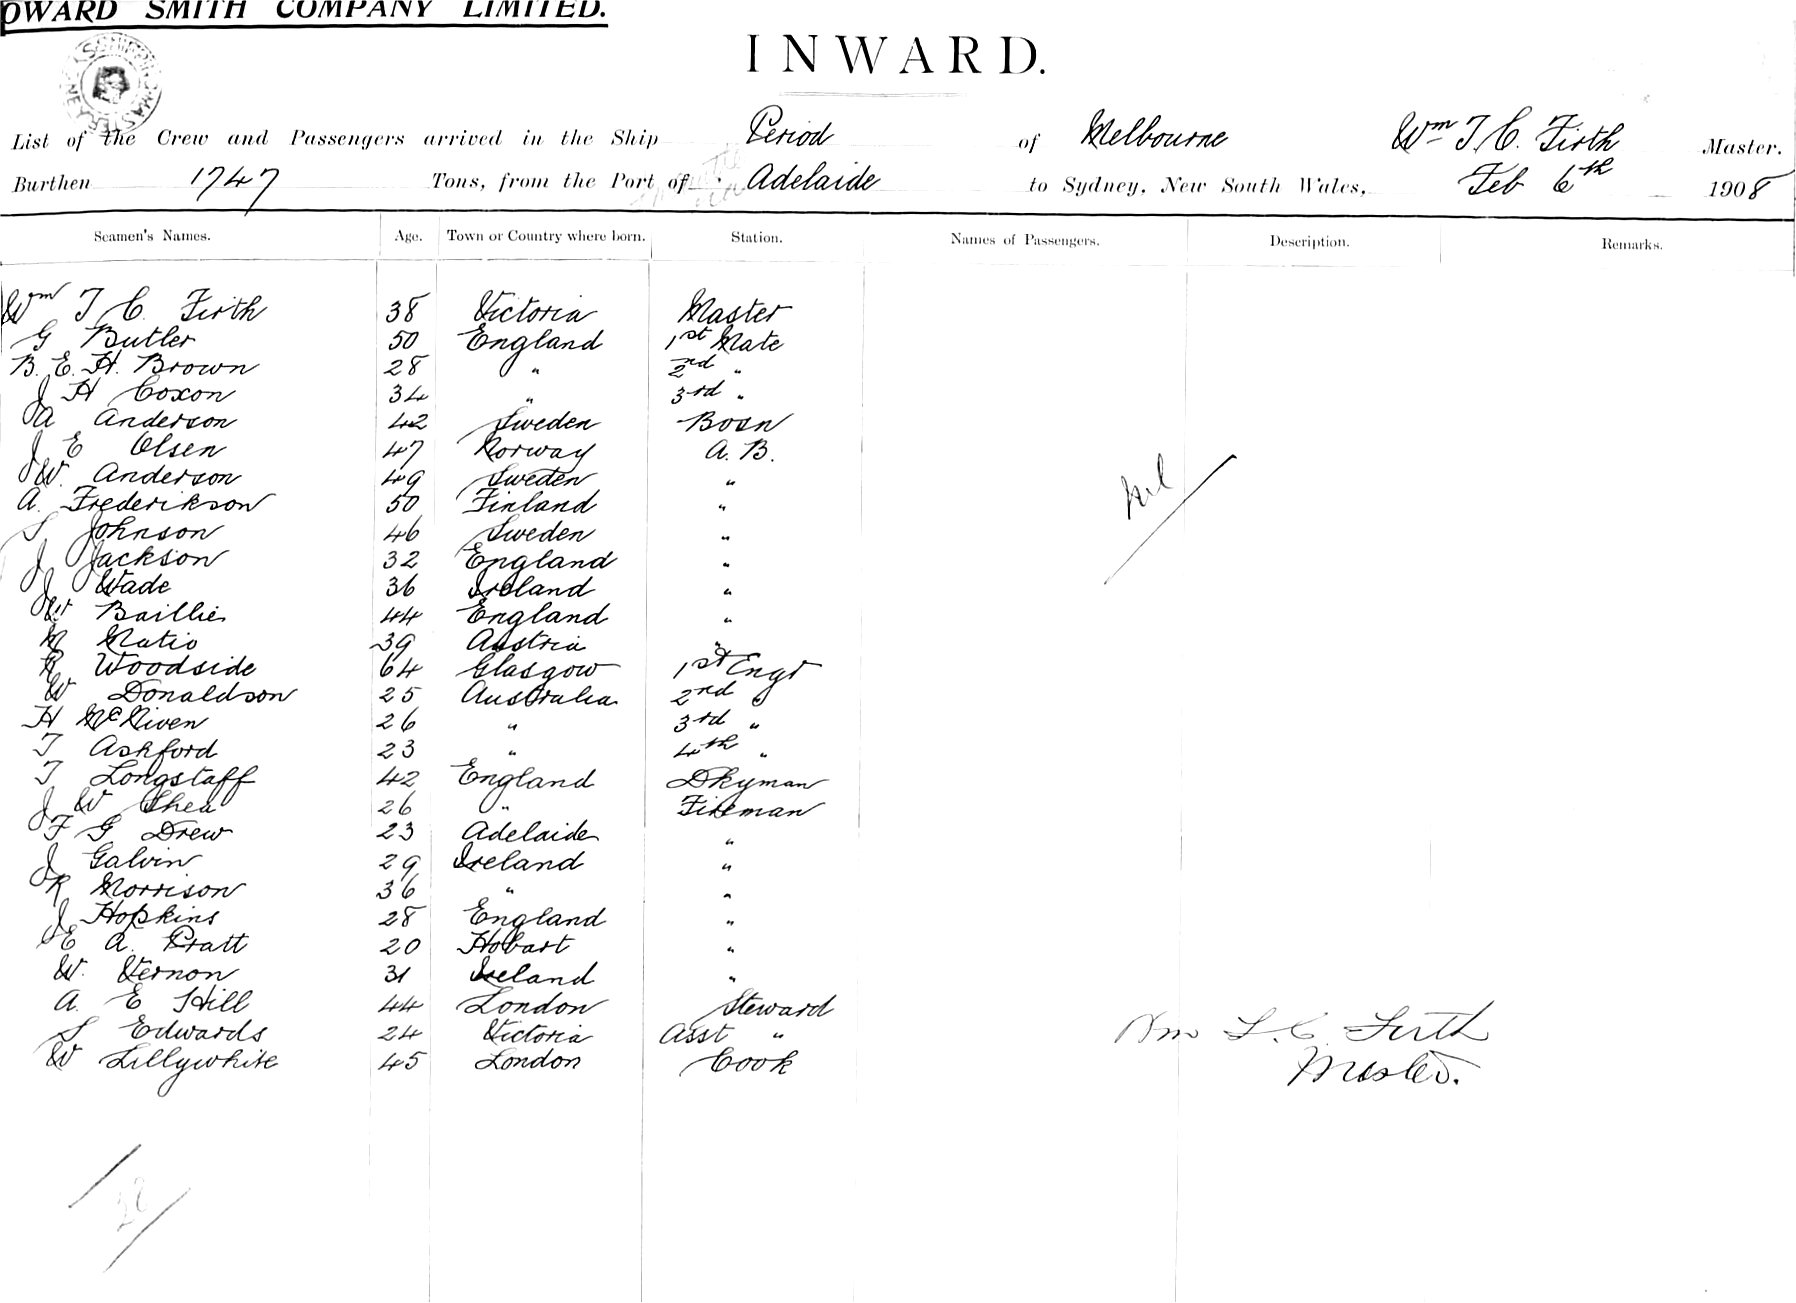 OWARD SMITH COMPANY LIMITED.
INWARD.
List of the Crew and Passengers arrived in the Ship Period of Melbourne Wm T C. Firth Master.
Burthen 1747 Tons, from the Port of Adelaide to Sydney, New South Wales, Feb 6th 1908
Seamen's Names. Age. Town or Country where born. Station. Names of Passengers. Description. Remarks.
Wm T C. Firth 38 Victoria Master
G Butler 50 England 1st Mate
B. E. H. Brown 28 " 2nd "
J H Coxon 34 " 3rd "
A Anderson 42 Sweden Bosn
J E Olsen 47 Norway A. B.
W. Anderson 49 Sweden "
A. Frederikson 50 Finland "
S Johnson 46 Sweden "
J Jackson 32 England "
J Wade 36 Ireland "
W. Baillie 44 England "
M Matio 39 Austria "
R Woodside 64 Glasgow 1st Engr
W Donaldson 25 Australia 2nd "
H McNiven 26 " 3rd "
T Ashford 23 " 4th "
T Longstaff 42 England Dkyman
J W Shea 26 " Fireman
F G Drew 23 Adelaide "
J Galvin 29 Ireland "
R Morrison 36 " "
J Hopkins 28 England "
E A. Pratt 20 Hobart "
W. Vernon 31 Ireland "
A. E Hill 44 London Steward
S Edwards 24 Victoria Asst "
W Lillywhite 45 London Cook
Nil
Wm T. C. Firth
Master.
28